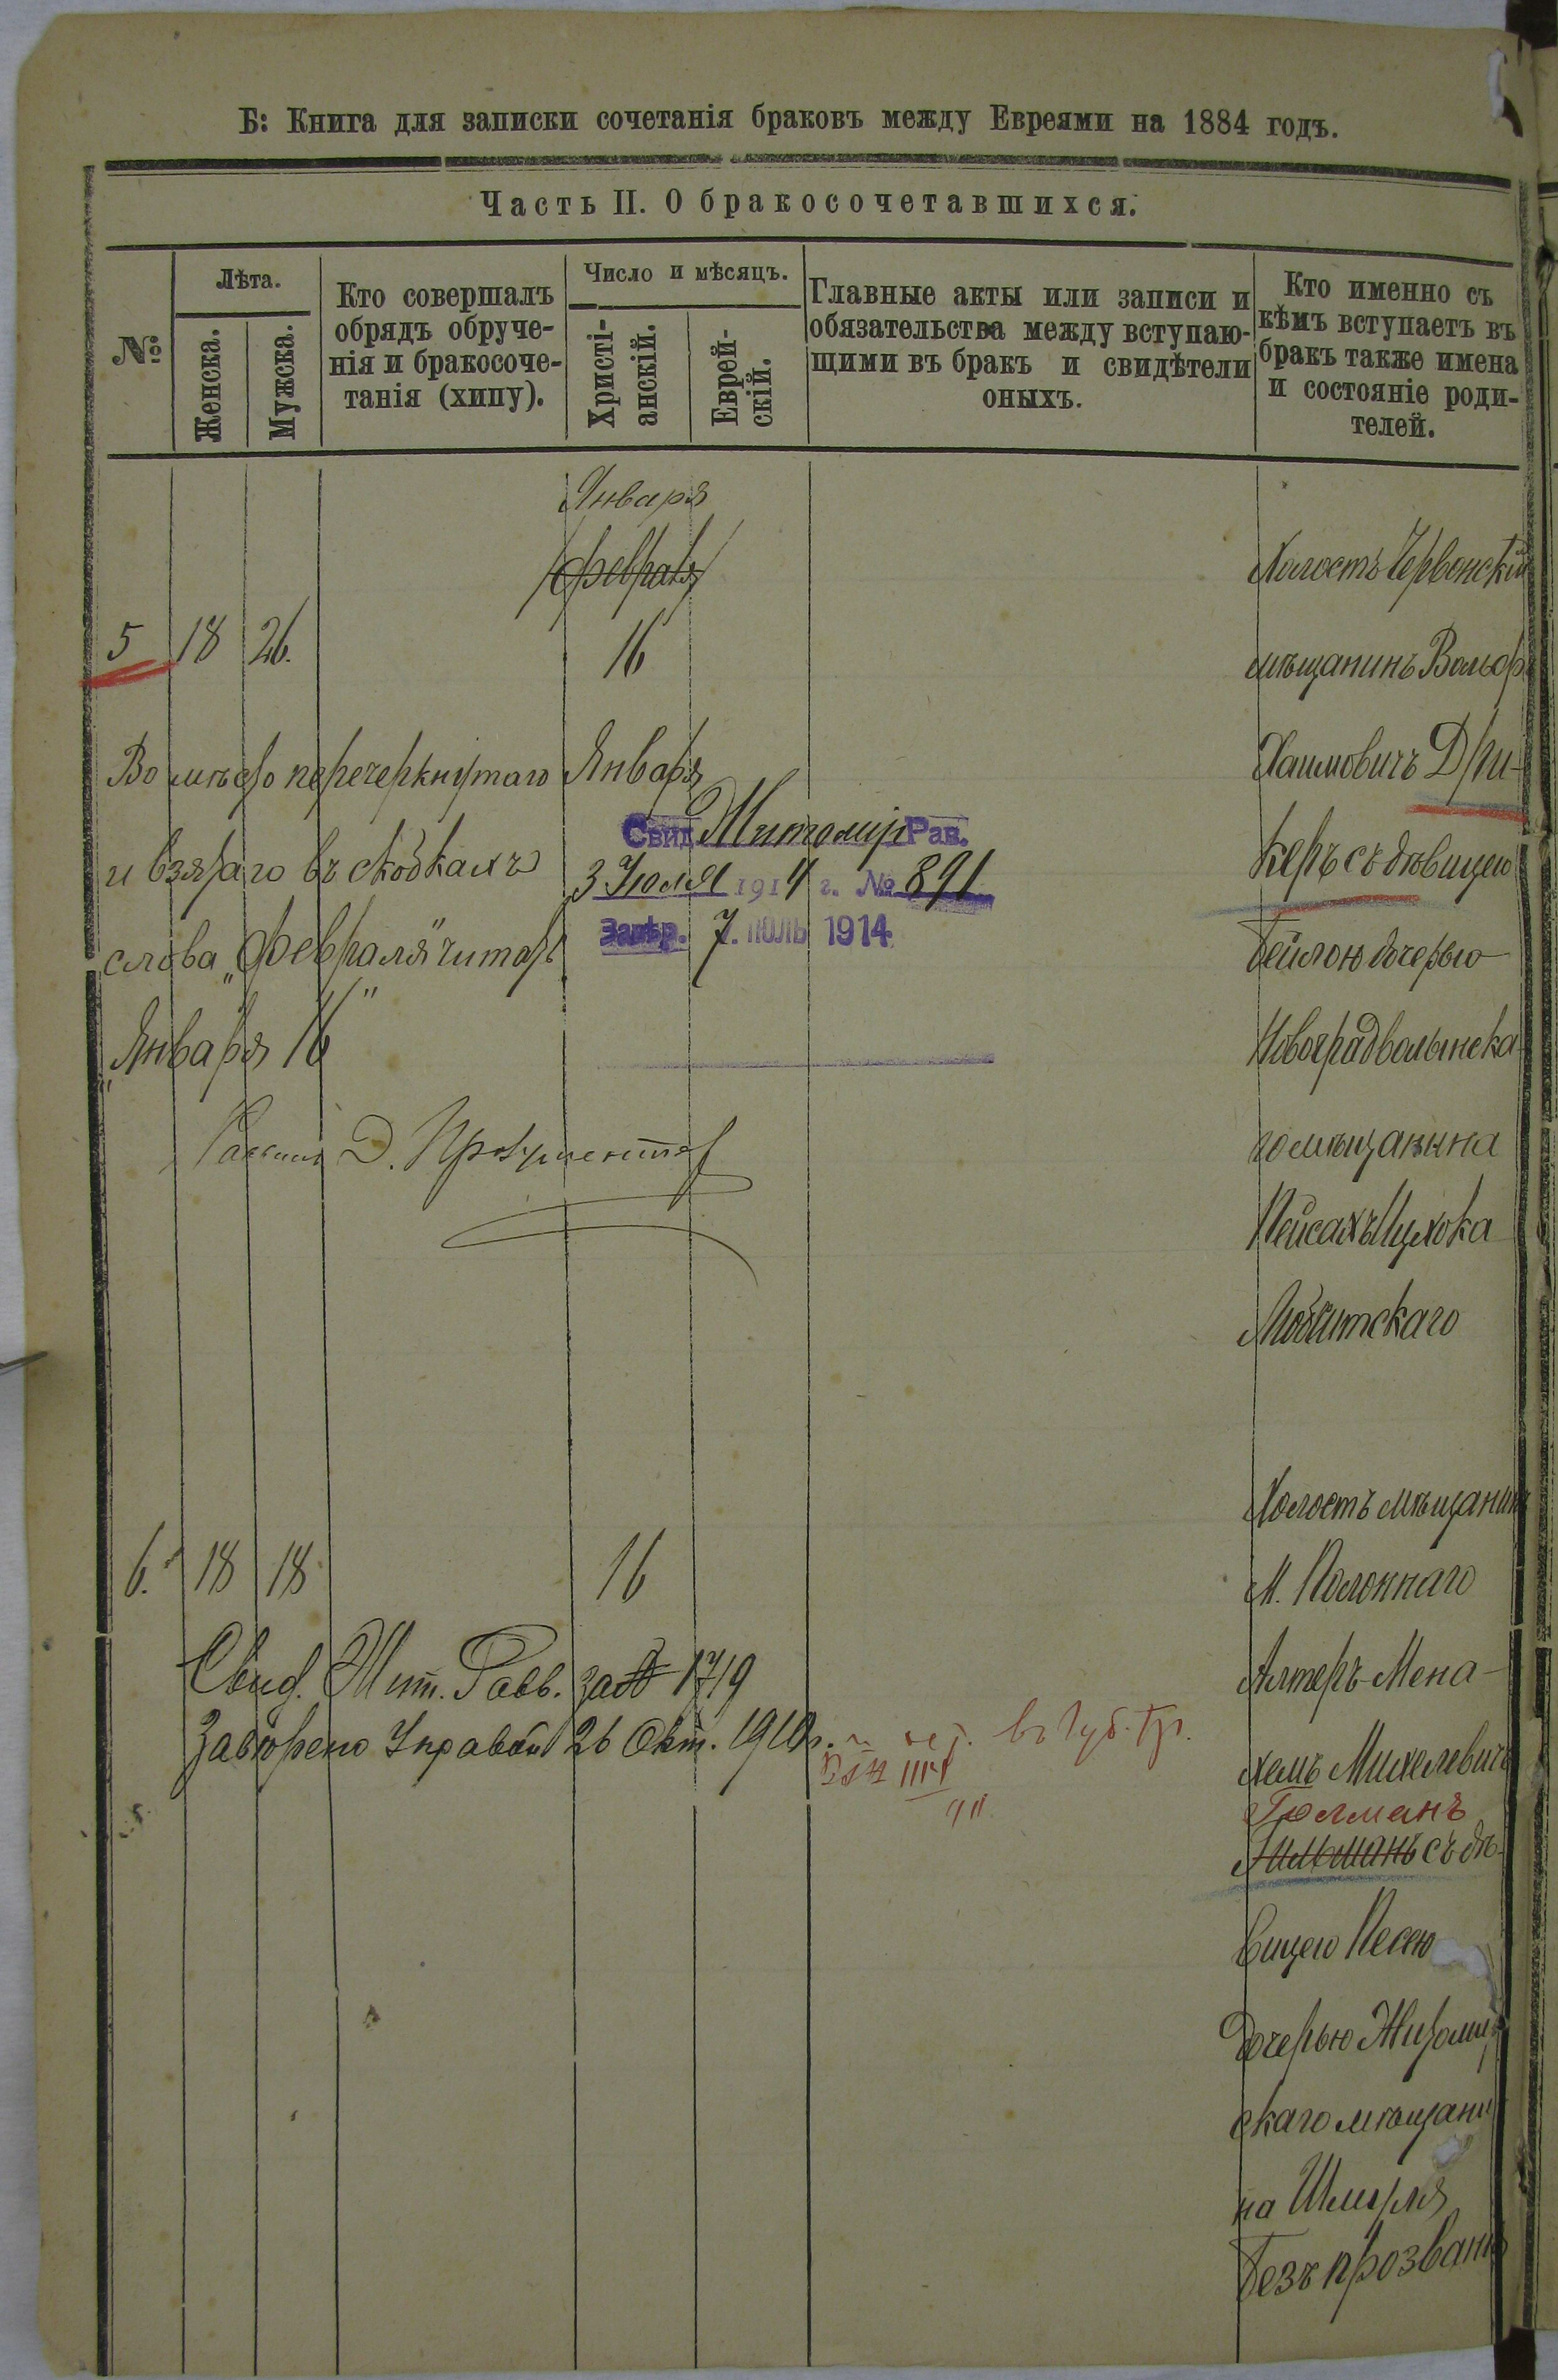 Б: Книга для записки сочетанія браковъ между Евреями на 1884 годъ.
Часть II. О бракосочетавшихся.
№
Лѣта.
Женска.
Мужска.
Кто совершалъ
обрядъ обруче-
нія и бракосоче-
танія (хипу).
Число и мѣсяцъ.
Христі-
анскій.
Еврей-
скій.
Главные акты или записи и
обязательства между вступаю-
щими въ бракъ и свидѣтели
оныхъ.
Кто именно съ
кѣмъ вступаетъ въ
бракъ также имена
и состояніе роди-
телей.
Января
(февраля)
5 18 26. 16
Холостъ Червонскій
мѣщанинъ Вольфъ
Хаимовичъ Дри-
керъ съ дѣвицею
Бейлою дочерью
Новоградволынска-
го мѣщанина
Пейсахъ
Вомѣсто перечеркнутаго Января
и взятаго въ скобкахъ
слова „февраля" читать
„Января 16"
Раввинъ Д.
Свид. Житомир Рав.
3 Юоля 1914 г. № 891
Завѣр. 7. ІЮЛЬ 1914
6. 18 18 16
Холостъ мѣщанинъ
М. Полоннаго
Алтеръ-Мена-
хемъ Михелевичъ
Голманъ
Гильманъ съ дѣ-
вицею Песею
дочерью Житомир
скаго мѣщани
на Шмерля
безъ прозванія
Свид. Жит. Равв. за № 1719
Завѣрено Управой 26 Окт. 1910г.
въ Губ. Пр.